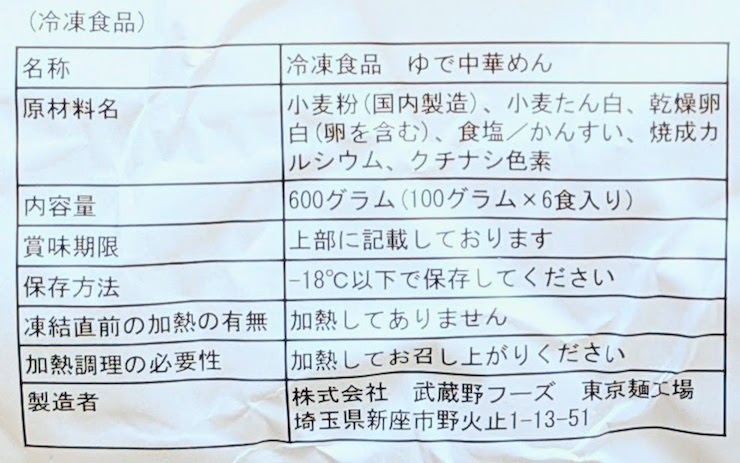 (冷凍食品)
名称 冷凍食品　ゆで中華めん
原材料名 小麦粉(国内製造)、小麦たん白、乾燥卵
白(卵を含む)、食塩／かんすい、焼成カ
ルシウム、クチナシ色素
内容量 600グラム(100グラム×6食入り)
賞味期限 上部に記載しております
保存方法 -18℃以下で保存してください
凍結直前の加熱の有無 加熱してありません
加熱調理の必要性 加熱してお召し上がりください
製造者 株式会社　武蔵野フーズ　東京麺工場
埼玉県新座市野火止1-13-51